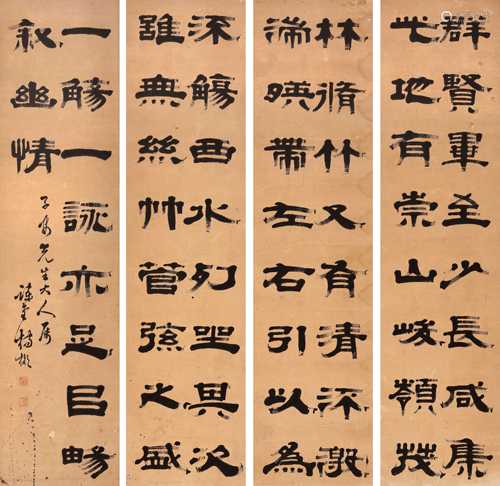 群賢畢至少長咸集
此地有崇山峻嶺茂
林脩竹又有清流激
湍暎帶左右引以為
流觴曲水列坐其次
雖無絲竹管弦之盛
一觴一詠亦足以暢
敘幽情
先生大人屬